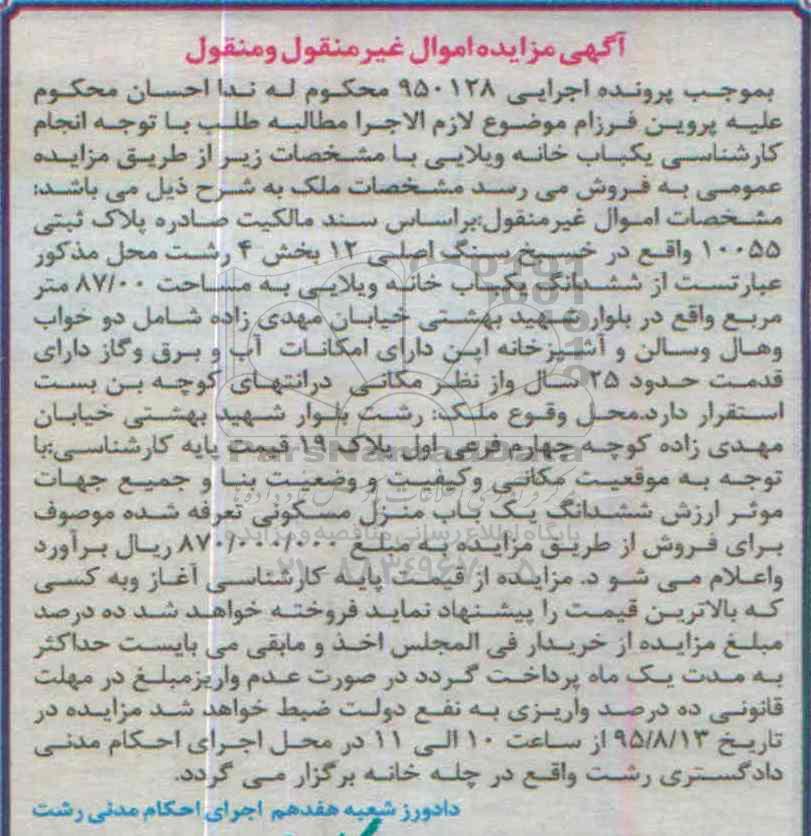 آگهی مزایده اموال غیر منقول و منقول
بموجب پرونده اجرایی ۹۵۰۱۲۸ محکوم له ندا احسان محکوم
علیه پروین فرزام موضوع لازم الاجرا مطالبه طلب با توجه انجام
کارشناسی یکباب خانه ویلایی با مشخصات زیر از طریق مزایده
عمومی به فروش می رسد مشخصات ملک به شرح ذیل می باشد:
مشخصات اموال غیرمنقول:براساس سند مالکیت صادره پلاک ثبتی
۱۰۰۵۵ واقع در خمیخ سنگ اصلی ۱۲ بخش ۴ رشت محل مذکور
عبارتست از ششدانگ یکباب خانه ویلایی به مساحت ۸۷/۰۰ متر
مربع واقع در بلوار شهید بهشتی خیابان مهدی زاده شامل دو خواب
وهال وسالن و آشپزخانه این دارای امکانات آب و برق وگاز دارای
قدمت حدود ۲۵ سال واز نظر مکانی درانتهای کوچه بن بست
استقرار دارد.محل وقوع ملک: رشت بلوار شهید بهشتی خیابان
مهدی زاده کوچه چهارم فرعی اول پلاک ۱۹ قیمت پایه کارشناسی:با
توجه به موقعیت مکانی وکیفیت و وضعیت بنا و جمیع جهات
موثر ارزش ششدانگ یک باب منزل مسکونی تعرفه شده موصوف
برای فروش از طریق مزایده به مبلغ ۸۷۰/۰۰۰/۰۰۰ ریال برآورد
واعلام می شو د. مزایده از قیمت پایه کارشناسی آغاز وبه کسی
که بالاترین قیمت را پیشنهاد نماید فروخته خواهد شد ده درصد
مبلغ مزایده از خریدار فی المجلس اخذ و مابقی می بایست حداکثر
به مدت یک ماه پرداخت گردد در صورت عدم واریزمبلغ در مهلت
قانونی ده درصد واریزی به نفع دولت ضبط خواهد شد مزایده در
تاریخ ۹۵/۸/۱۳ از ساعت ۱۰ الی ۱۱ در محل اجرای احکام مدنی
دادگستری رشت واقع در چله خانه برگزار می گردد.
دادورز شعبه هفدهم اجرای احکام مدنی رشت
ParsNamadData
پایگاه اطلاع رسانی مناقصه و مزایده
۰۲۱-۸۸۳۴۹۶۷۰-۵